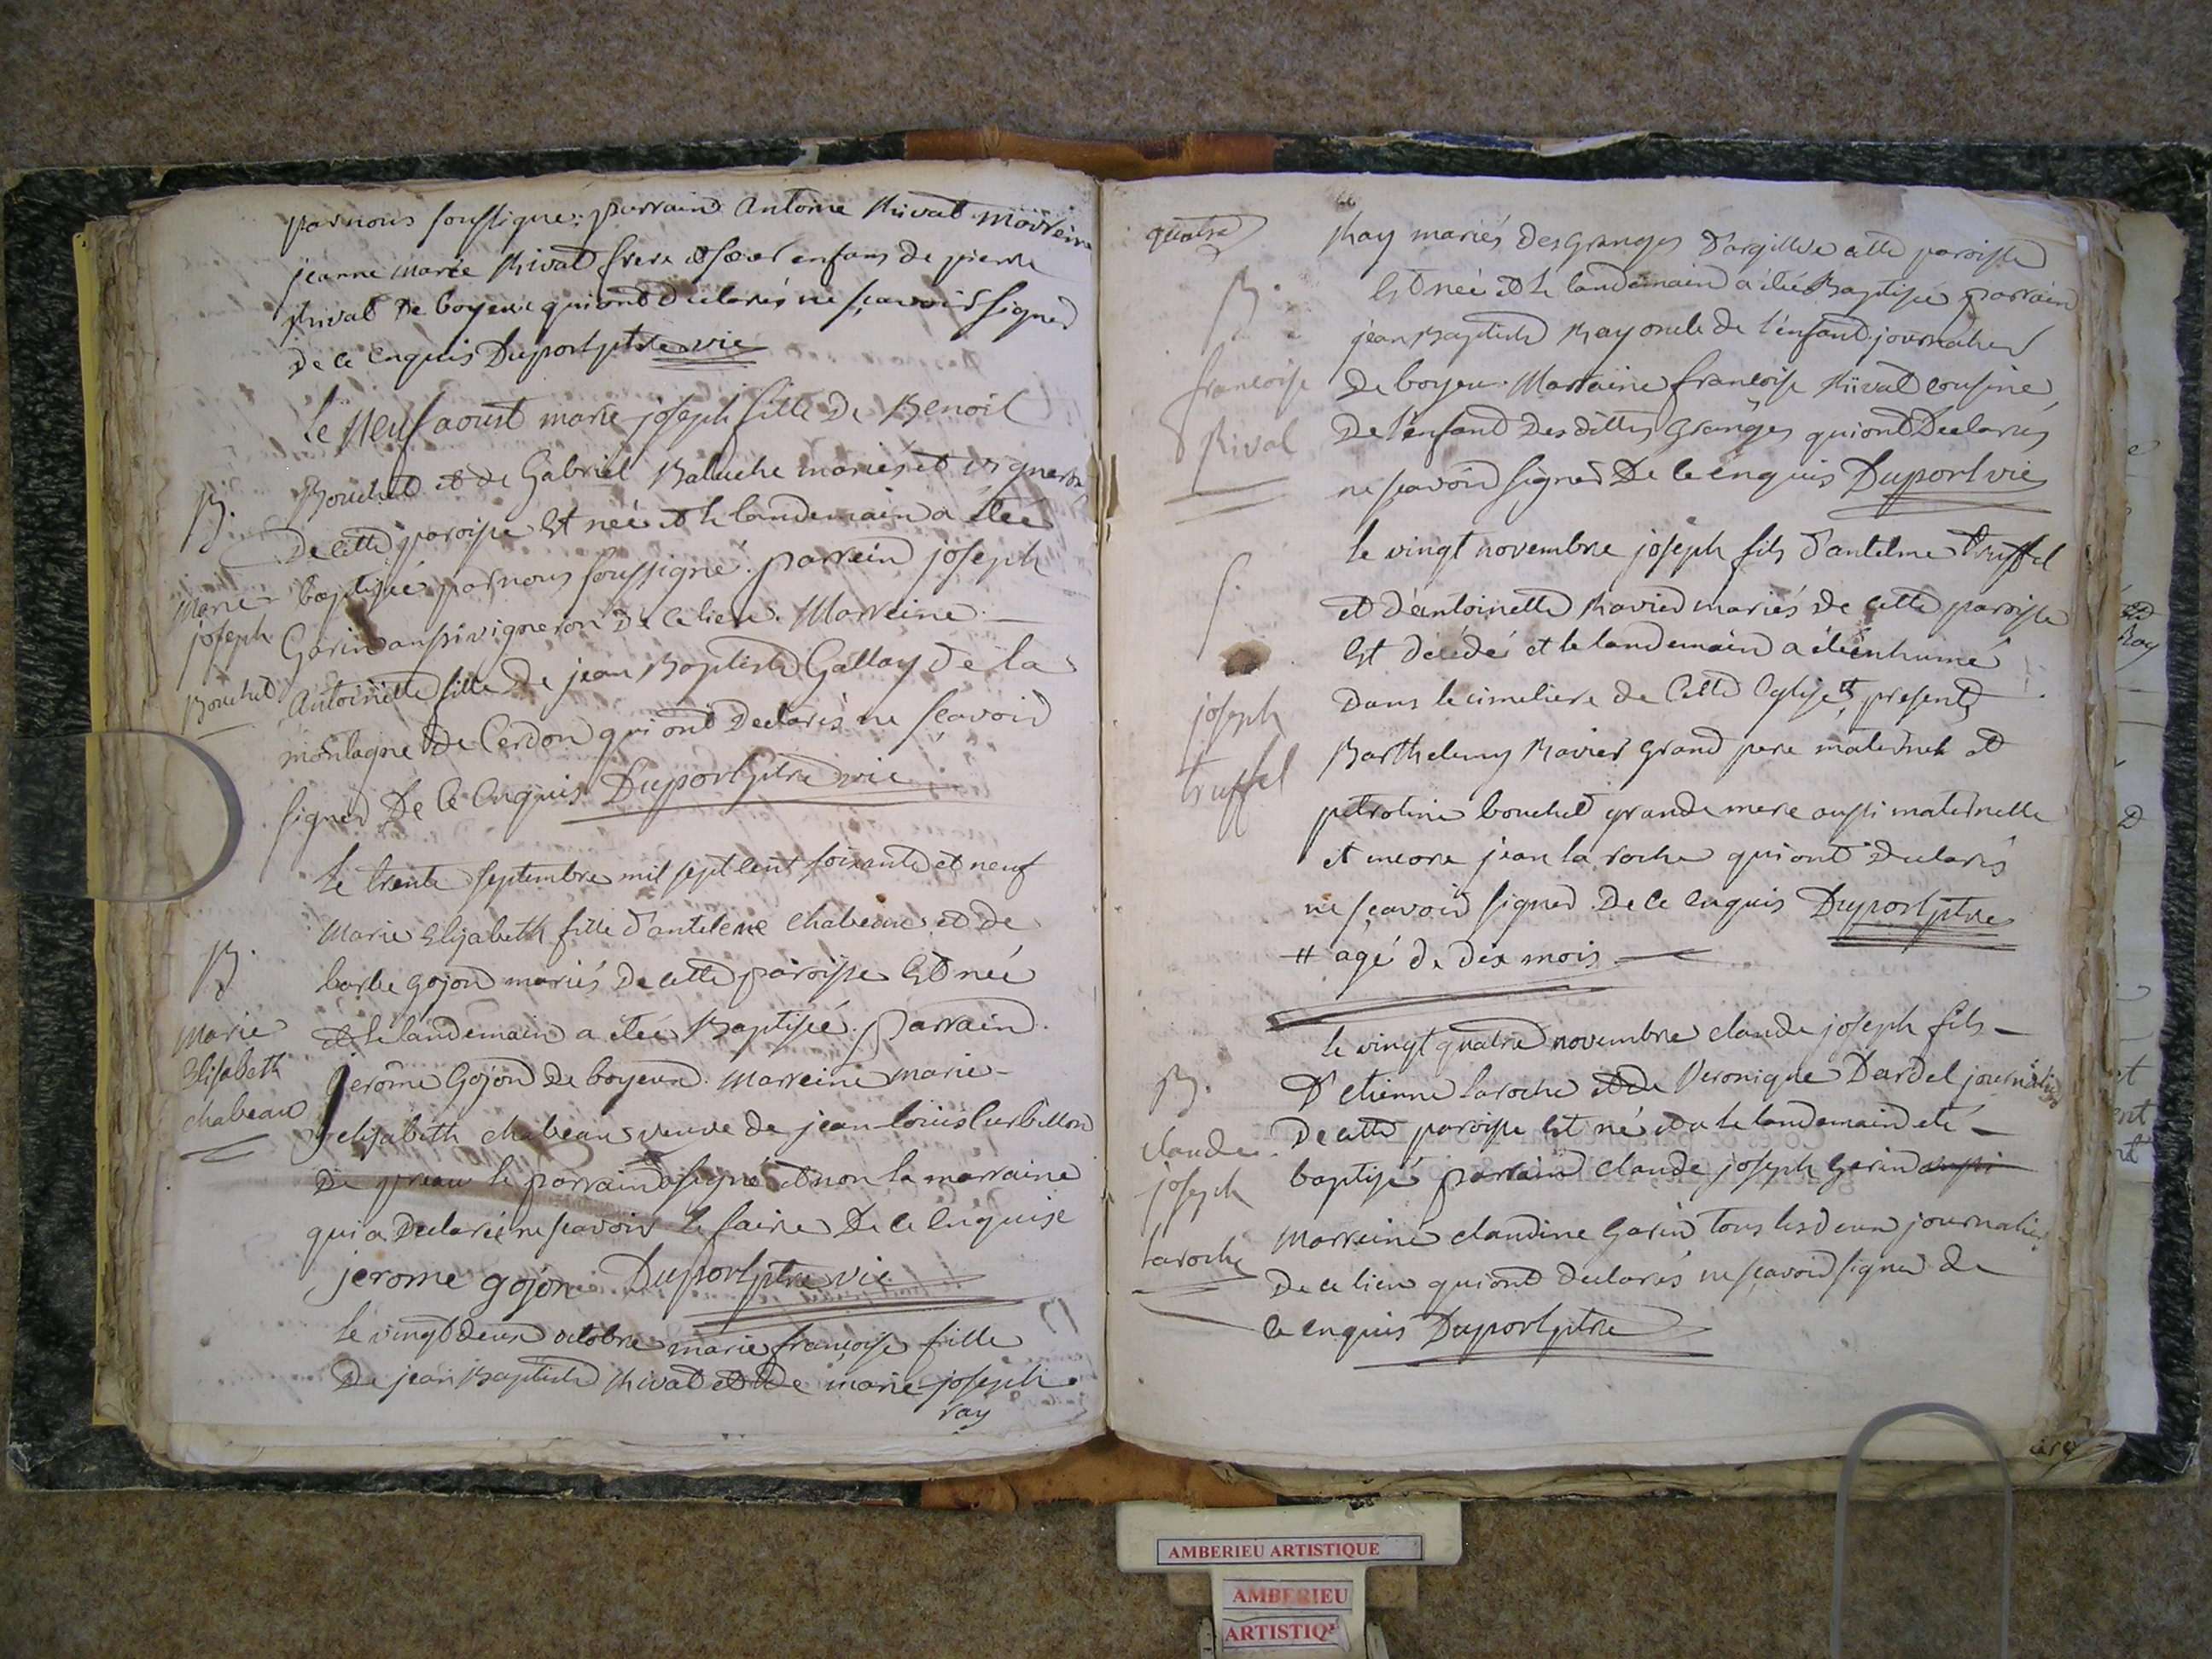 par nous soussigné. parrain Antoine Rival marreine
jeanne marie Rival frere et soeur enfans de pierre
Rival de boyeux qui ont declarés ne sçavoir signer
de ce enquis Duport ptre vic
Le neuf aoust marie joseph fille de Benoit
Bouchet et de Gabriel Baluche mariés et vignerons
B.
de cette paroisse est née et le landemain a étée
Marie
joseph
Bouchet
baptisée par nous soussigné. parrein joseph
Garin aussi vigneron de ce lieu. Marreine
Antoinette fille de jean Baptiste Gallay de la
montagne de Cerdon qui ont declarés ne sçavoir
signer De ce enquis Duport ptre vic
Le trente septembre mil sept cent soixante et neuf
marie elisabeth fille d'antelme chabeaux et de
B.
barbe gojon mariés de cette paroisse est née
Marie
Elisabeth
chabeaux
et le landemain a étée Baptisée. parrain
jerôme Gojon de boyeux. marreine marie
elisabeth chabeaux veuve de jean louis Curbillon
de preau le parrain a signé et non la marraine
qui a declarée ne scavoir le faire De ce enquise
jerome gojon Duport ptre vic
le vingt deux octobre marie françoise fille
De jean Baptiste Rival et de marie joseph
ray
quatre
Ray mariés des Granges d'argille de cette paroisse
B.
est née et le landemain a étée Baptisée parrain
jean Baptiste Ray oncle de l'enfant journalier
francoise
Rival
de boyeu. Marraine francoise Rival cousine
De l'enfant des dittes Granges qui ont Declarés
ne scavoir signer De ce enquis Duport vic
le vingt novembre joseph fils d'antelme truffel
S.
et d'antoinette Ravier mariés de cette paroisse
est décédé et le landemain a été inhumé
Dans le cimetiere de cette eglise # presents
joseph
truffel
Barthelemy Ravier grand pere maternel et
petroline bouchet grande mere aussi maternelle
et encore jean la roche qui ont declarés
ne sçavoir signer De ce enquis Duport ptre
# agé de dix mois
le vingt quatre novembre claude joseph fils
B.
D'etienne laroche et de Veronique Dardel journaliers
claude
joseph
laroche
De cette paroisse est né et a le landemain eté
baptisé parrain claude joseph Garin aussi
Marreine claudine Garin tous les deux journaliers
De ce lieu qui ont declarés ne sçavoir signer de
ce enquis Duport ptre
AMBERIEU ARTISTIQUE
AMBERIEU
ARTISTIQ